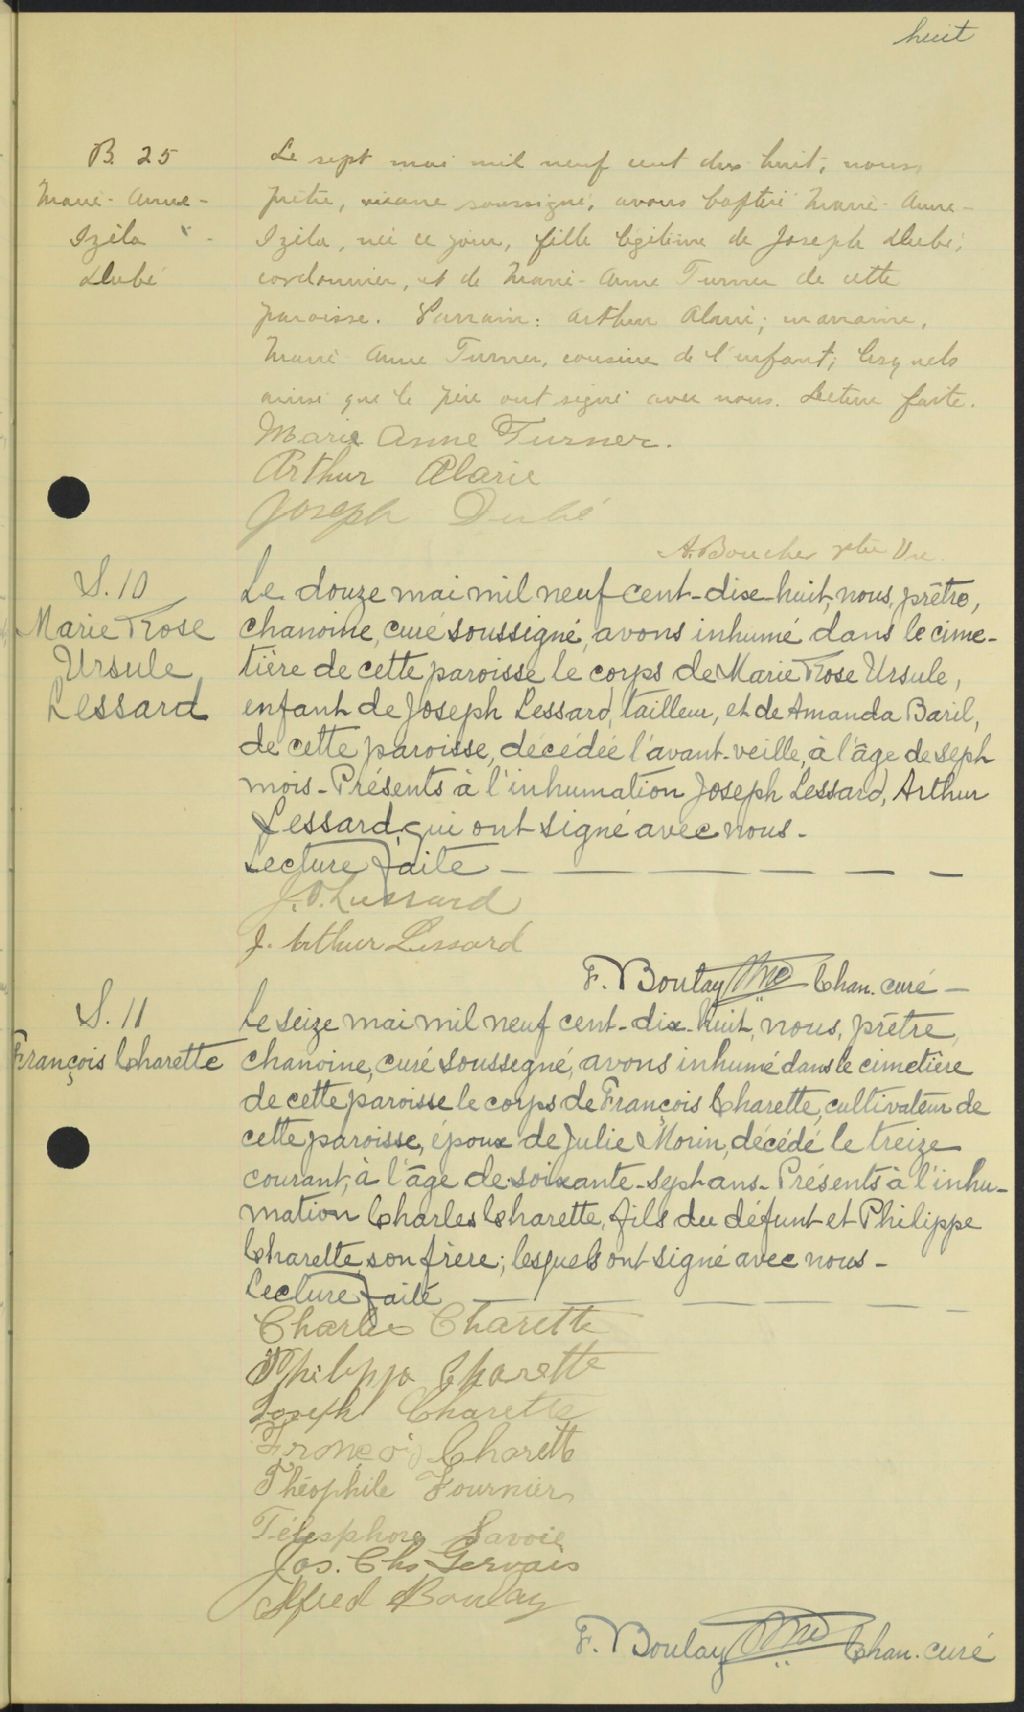 huit
B. 25
Marie-Anne-
Izéla
Dubé
Le sept mai mil neuf cent dix huit, nous,
prêtre, vicaire soussigné, avons baptisé Marie-Anne-
Izila, née ce jour, fille légitime de Joseph Dubé,
cordonnier, et de Marie-Anne Turner de cette
paroisse. Parrain: Arthur Alarie; marraine,
Marie-Anne Turner, cousine de l'enfant; lesquels
ainsi que le père ont signé avec nous. Lecture faite.
Marie Anne Turner.
Arthur Alarie
Joseph Dubé
A. Boucher ptre Vic.
S. 10
Marie Rose
Ursule
Lessard
Le douze mai mil neuf cent-dix-huit, nous, prêtre,
chanoine, curé soussigné, avons inhumé dans le cime-
tière de cette paroisse le corps de Marie Rose Ursule,
enfant de Joseph Lessard, tailleur, et de Amanda Baril,
de cette paroisse, décédée l'avant-veille, à l'âge de sept
mois - Présents à l'inhumation Joseph Lessard, Arthur
Lessard, qui ont signé avec nous -
Lecture faite
J. O. Lessard
J. Arthur Lessard
F. Boulay Chan. curé -
S. 11
François Charette
Le seize mai mil neuf cent-dix-huit, nous, prêtre,
chanoine, curé soussegné, avons inhumé dans le cimetière
de cette paroisse le corps de François Charette, cultivateur de
cette paroisse, époux de Julie Morin, décédé le treize
courant, à l'âge de soixante-sept ans - Présents à l'inhu-
mation Charles Charette, fils du défunt et Philippe
Charette, son frère; lesquels ont signé avec nous -
Lecture faite
Charles Charette
Philippe Charette
Joseph Charette
François Charette
Théophile Fournier
Télesphore Savoie
Jos. Chs Gervais
Alfred Boulay
F. Boulay Chan. curé